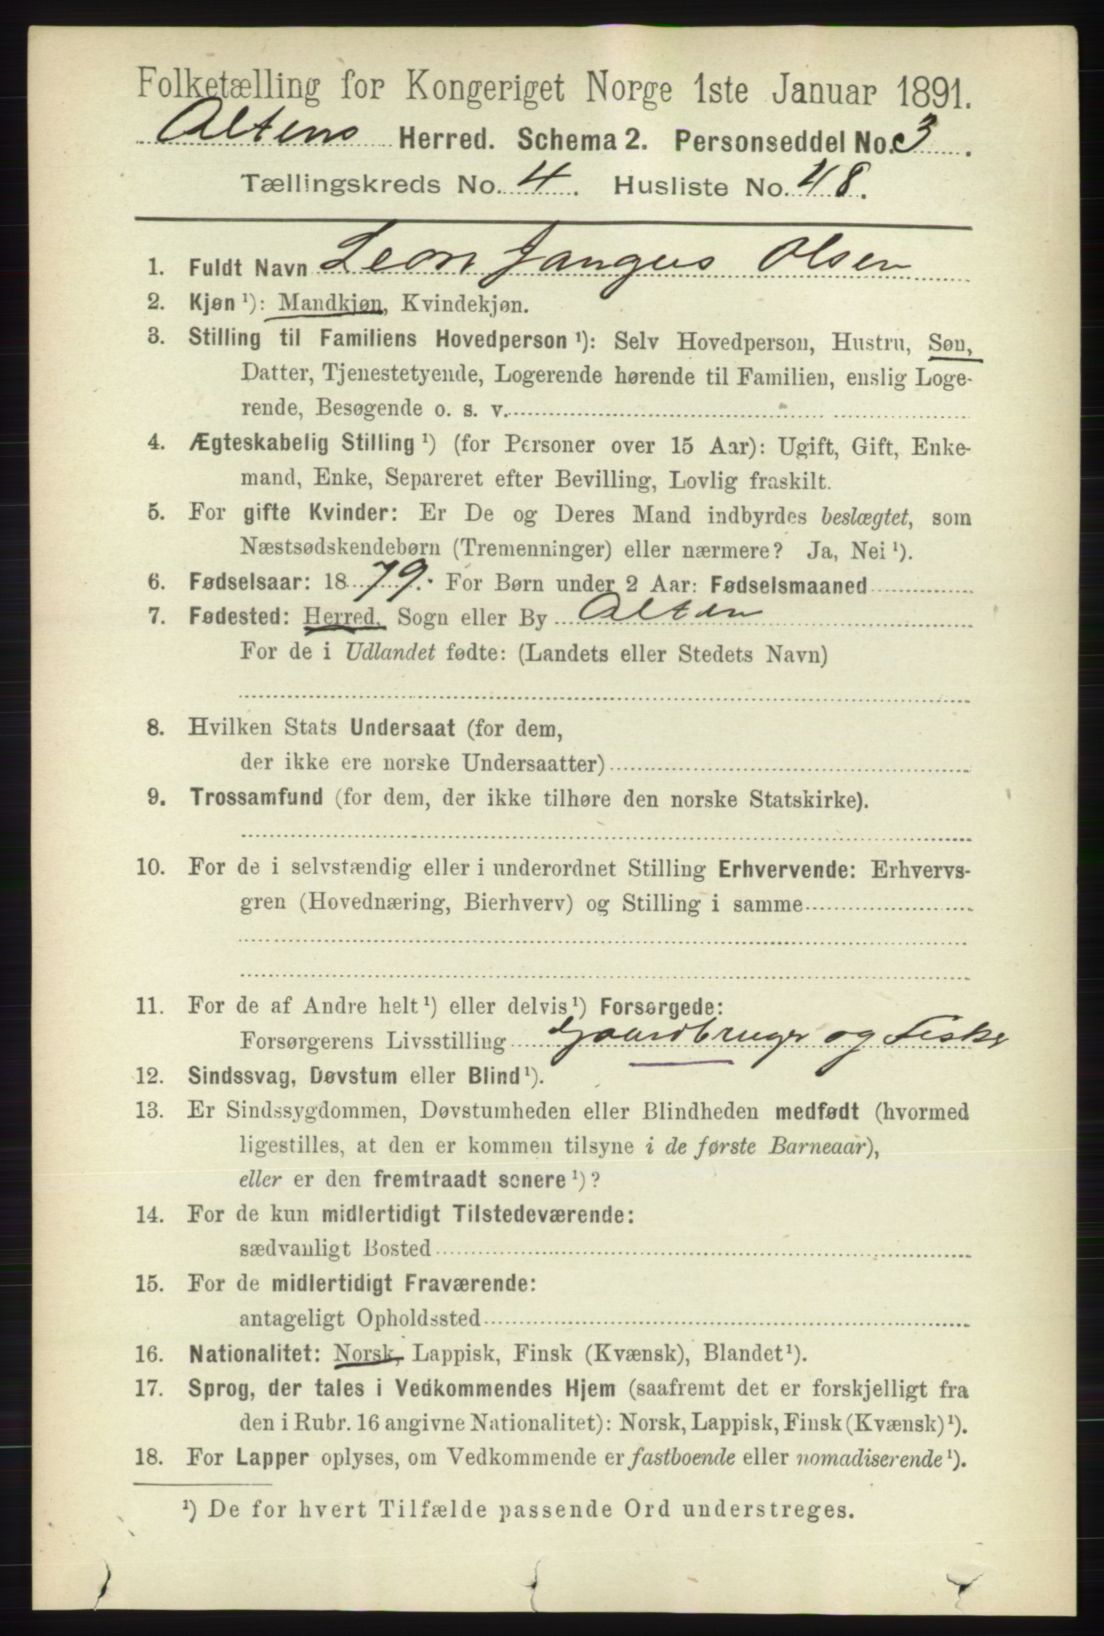 Folketælling for Kongeriget Norge 1ste Januar 1891.
Altens Herred. Schema 2. Personseddel No. 3.
Tællingskreds No. 4. Husliste No. 48.
1. Fuldt Navn Leon Jangus Olsen
2. Kjøn ¹): Mandkjøn, Kvindekjøn.
3. Stilling til Familiens Hovedperson ¹): Selv Hovedperson, Hustru, Søn,
Datter, Tjenestetyende, Logerende hørende til Familien, enslig Loge-
rende, Besøgende o. s. v.
4. Ægteskabelig Stilling ¹) (for Personer over 15 Aar): Ugift, Gift, Enke-
mand, Enke, Separeret efter Bevilling, Lovlig fraskilt.
5. For gifte Kvinder: Er De og Deres Mand indbyrdes beslægtet, som
Næstsødskendebørn (Tremenninger) eller nærmere? Ja, Nei ¹).
6. Fødselsaar: 1879. For Børn under 2 Aar: Fødselsmaaned
7. Fødested: Herred, Sogn eller By Alten
For de i Udlandet fødte: (Landets eller Stedets Navn)
8. Hvilken Stats Undersaat (for dem,
der ikke ere norske Undersaatter)
9. Trossamfund (for dem, der ikke tilhøre den norske Statskirke).
10. For de i selvstændig eller i underordnet Stilling Erhvervende: Erhvervs-
gren (Hovednæring, Bierhverv) og Stilling i samme
11. For de af Andre helt ¹) eller delvis ¹) Forsørgede:
Forsørgerens Livsstilling Gaardbruger og Fisker
12. Sindssvag, Døvstum eller Blind ¹).
13. Er Sindssygdommen, Døvstumheden eller Blindheden medfødt (hvormed
ligestilles, at den er kommen tilsyne i de første Barneaar),
eller er den fremtraadt senere ¹)?
14. For de kun midlertidigt Tilstedeværende:
sædvanligt Bosted
15. For de midlertidigt Fraværende:
antageligt Opholdssted
16. Nationalitet: Norsk, Lappisk, Finsk (Kvænsk), Blandet ¹).
17. Sprog, der tales i Vedkommendes Hjem (saafremt det er forskjelligt fra
den i Rubr. 16 angivne Nationalitet): Norsk, Lappisk, Finsk (Kvænsk) ¹).
18. For Lapper oplyses, om Vedkommende er fastboende eller nomadiserende ¹).
¹) De for hvert Tilfælde passende Ord understreges.